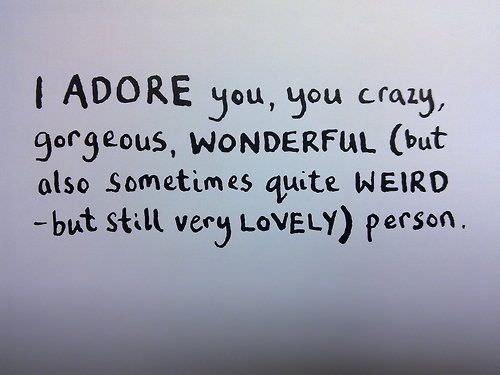 I ADORE you, you crazy,
gorgeous, WONDERFUL (but
also sometimes quite WEIRD
-but still very LOVELY) person.